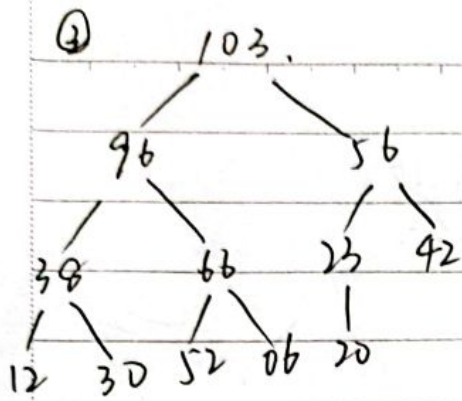 ③
103.
96 56
38 66 23 42
12 30 52 06 20